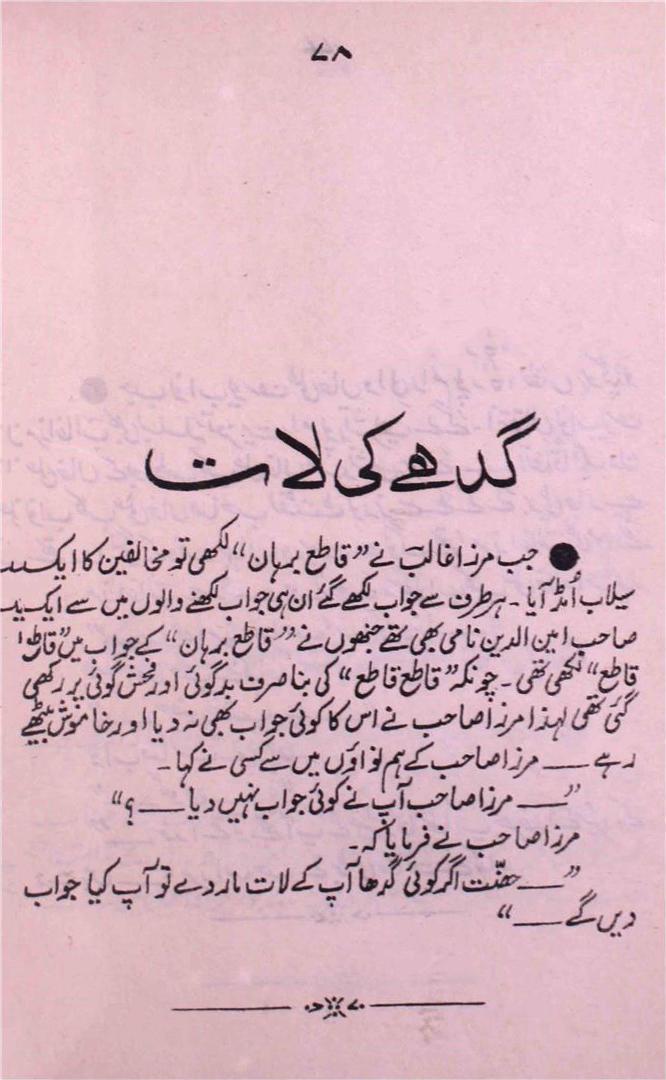 ۷۸
گدھے کی لات
جب مرزا غالبؔ نے ”قاطع برہان“ لکھی تو مخالفین کا ایک
سیلاب اُمڈ آیا۔ ہر طرف سے جواب لکھے گئے ان ہی جواب لکھنے والوں میں سے ایک
صاحب امین الدین نامی بھی تھے جنھوں نے ”قاطع برہان“ کے جواب میں ”قاطع
قاطع“ لکھی تھی۔ چونکہ ”قاطع قاطع“ کی بنا صرف بدگوئی اور فحش گوئی پر رکھی
گئی تھی لہذا مرزا صاحب نے اس کا کوئی جواب بھی نہ دیا اور خاموش بیٹھے
رہے ـــ مرزا صاحب کے ہم نواؤں میں سے کسی نے کہا۔
”ـــ مرزا صاحب آپ نے کوئی جواب نہیں دیا ـــ؟“
مرزا صاحب نے فرمایا کہ۔
”ـــ حضّت اگر کوئی گدھا آپ کے لات مار دے تو آپ کیا جواب
دیں گے ـــ“